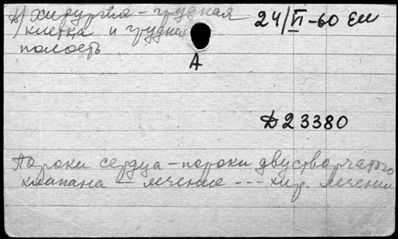 Д) хирургия - грудная
клетка и грудная
полость
24/VI-60 Ем
А
Д23380
Пороки сердца - пороки двустворчатого
клапана - лечение --- хир. лечение